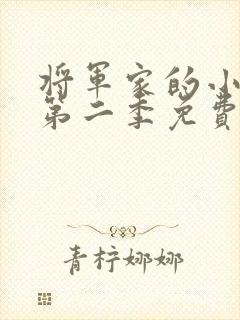 将军家的小
第二季免费
青柠娜娜